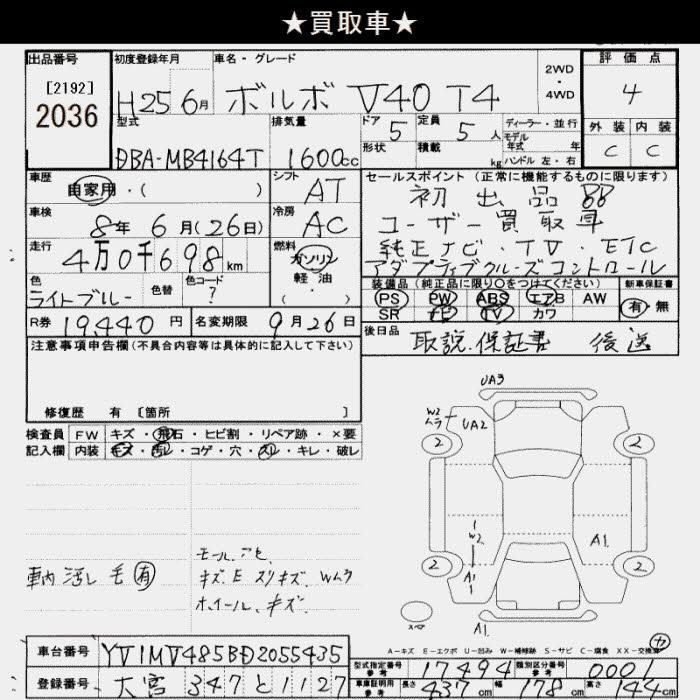 ★買取車★
出品番号 初度登録年月 車名・グレード 2WD ・ 4WD 評価点
[2192]
2036 H25 6月 ボルボ V40 T4 4
型式 排気量 ドア 定員 ディーラー・並行 外装 内装
5 5人 モデル 年式 年
DBA-MB4164T 1600cc 形状 積載 kg ハンドル 左・右 C C
車歴 シフト セールスポイント(正常に機能するものに限ります)
自家用・( ) AT 初出品
車検 冷房 ユーザー買取車
8年6月(26日) AC 純正ナビ・TV・ETC
走行 燃料 アダプティブクルーズコントロール
4万0千698km ガソリン 装備品(純正品に限り○をつけてください) 新車保証書
色 色替 色コード 軽油 PS PW ABS エアB AW 有・無
ライトブルー ? ( ) SR ナビ TV カワ
R券 19,440円 名変期限 9月26日 後日品 取説.保証書 後送
注意事項申告欄(不具合内容等は具体的に記入して下さい)
修復歴 有 [箇所 ]
検査員 FW キズ・飛石・ヒビ割・リペア跡・×要
記入欄 内装 キズ・汚レ・コゲ・穴・スレ・キレ・破レ
UA3
W2 ムラ UA2
2 2
W2 A1
A1
2 2
スペア A1
車内汚れ 毛 有
モール、
キズ、E スリキズ、Wムラ
ホイール、キズ
A-キズ E-エクボ U-凹み W-補修跡 S-サビ C-腐食 XX-交換済 カ
車台番号 YV1MV485BD2055435
型式指定番号 参考 17494 類別区分番号 参考 0001
登録番号 大宮 347と1127
車庫証明用 参考 長さ 437cm 幅 178cm 高さ 144cm